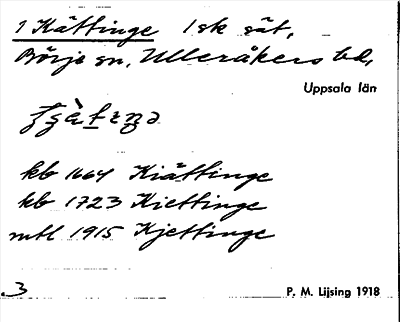 1 Kättinge 1 sk sät,
Börje sn, Ulleråkers hd,
Uppsala län
kb 1664 Kiättinge
kb 1723 Kiettinge
mtl 1915 Kjettinge
3
P. M. Lijsing 1918